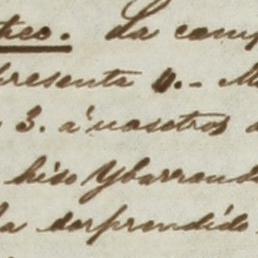 tec. La comp
presenta 4.- M
3. á vosotros
hiso Ybarrond
ha sorprendído